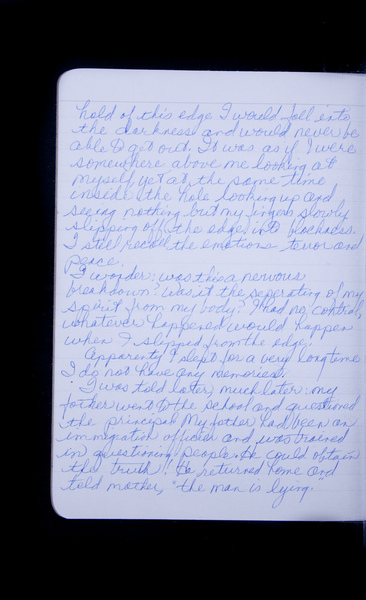 hold of this edge I would fall into
the darkness and would never be
able to get out. It was as if I were
somewhere above me looking at
myself yet at the same time
inside the hole looking up and
seeing nothing but my fingers slowly
slipping off the edge into blackness.
I still recall the emotions terror and
peace.
I wonder: was this a nervous
breakdown? Was it the seperating of my
spirit from my body? I had no control,
whatever happened would happen
when I slipped from the edge.
Apparently I slept for a very long time
I do not have any memories.
I was told later, much later: my
father went to the school and questioned
the principal. My father had been an
immigration officer and was trained
in questioning people. He could obtain
the truth! He returned home and
told mother, "the man is lying."